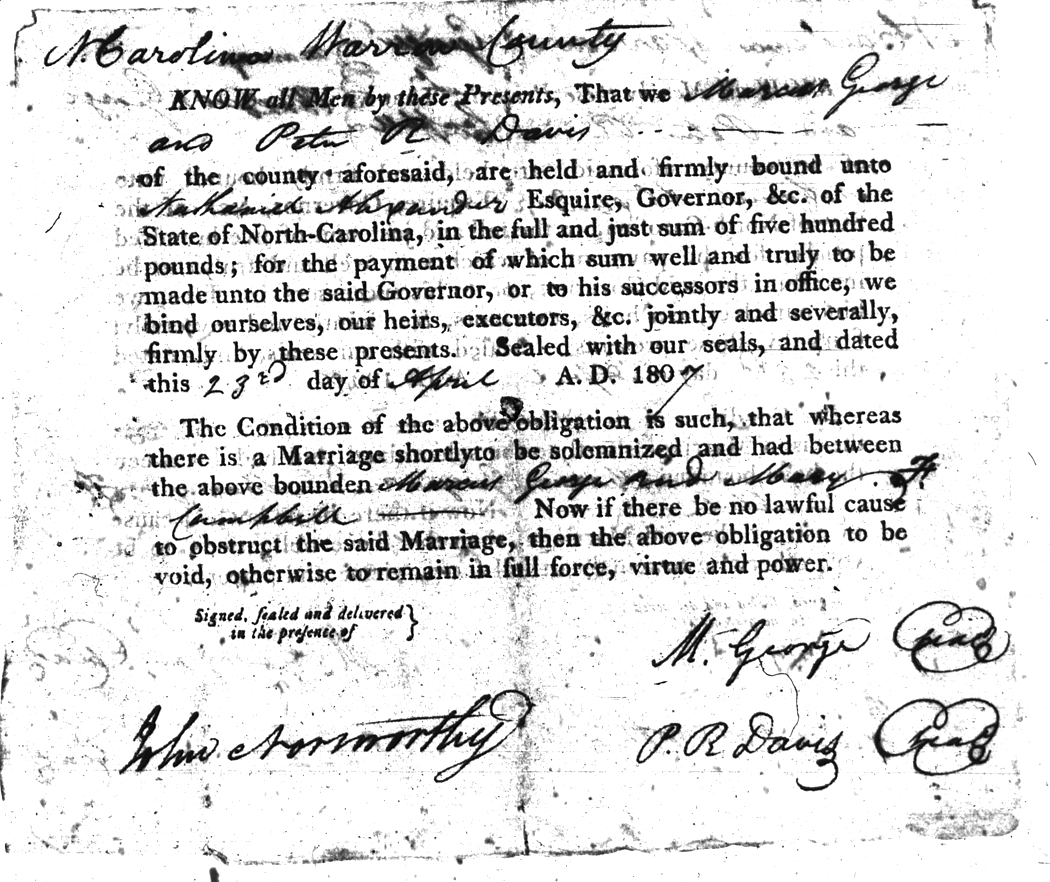 N. Carolina Warren County
KNOW all Men by these Presents, That we Marcus George
and Peter R. Davis
of the county aforesaid, are held and firmly bound unto
Nathaniel Alexander Esquire, Governor, &c. of the
State of North-Carolina, in the full and just sum of five hundred
pounds; for the payment of which sum well and truly to be
made unto the said Governor, or to his successors in office, we
bind ourselves, our heirs, executors, &c. jointly and severally,
firmly by these presents. Sealed with our seals, and dated
this 23rd day of April A. D. 1807
The Condition of the above obligation is such, that whereas
there is a Marriage shortly to be solemnized and had between
the above bounden Marcus George and Mary F
Campbell Now if there be no lawful cause
to obstruct the said Marriage, then the above obligation to be
void, otherwise to remain in full force, virtue and power.
Signed, sealed and delivered }
in the presence of
M. George Seal
John Norsworthy P. R Davis Seal